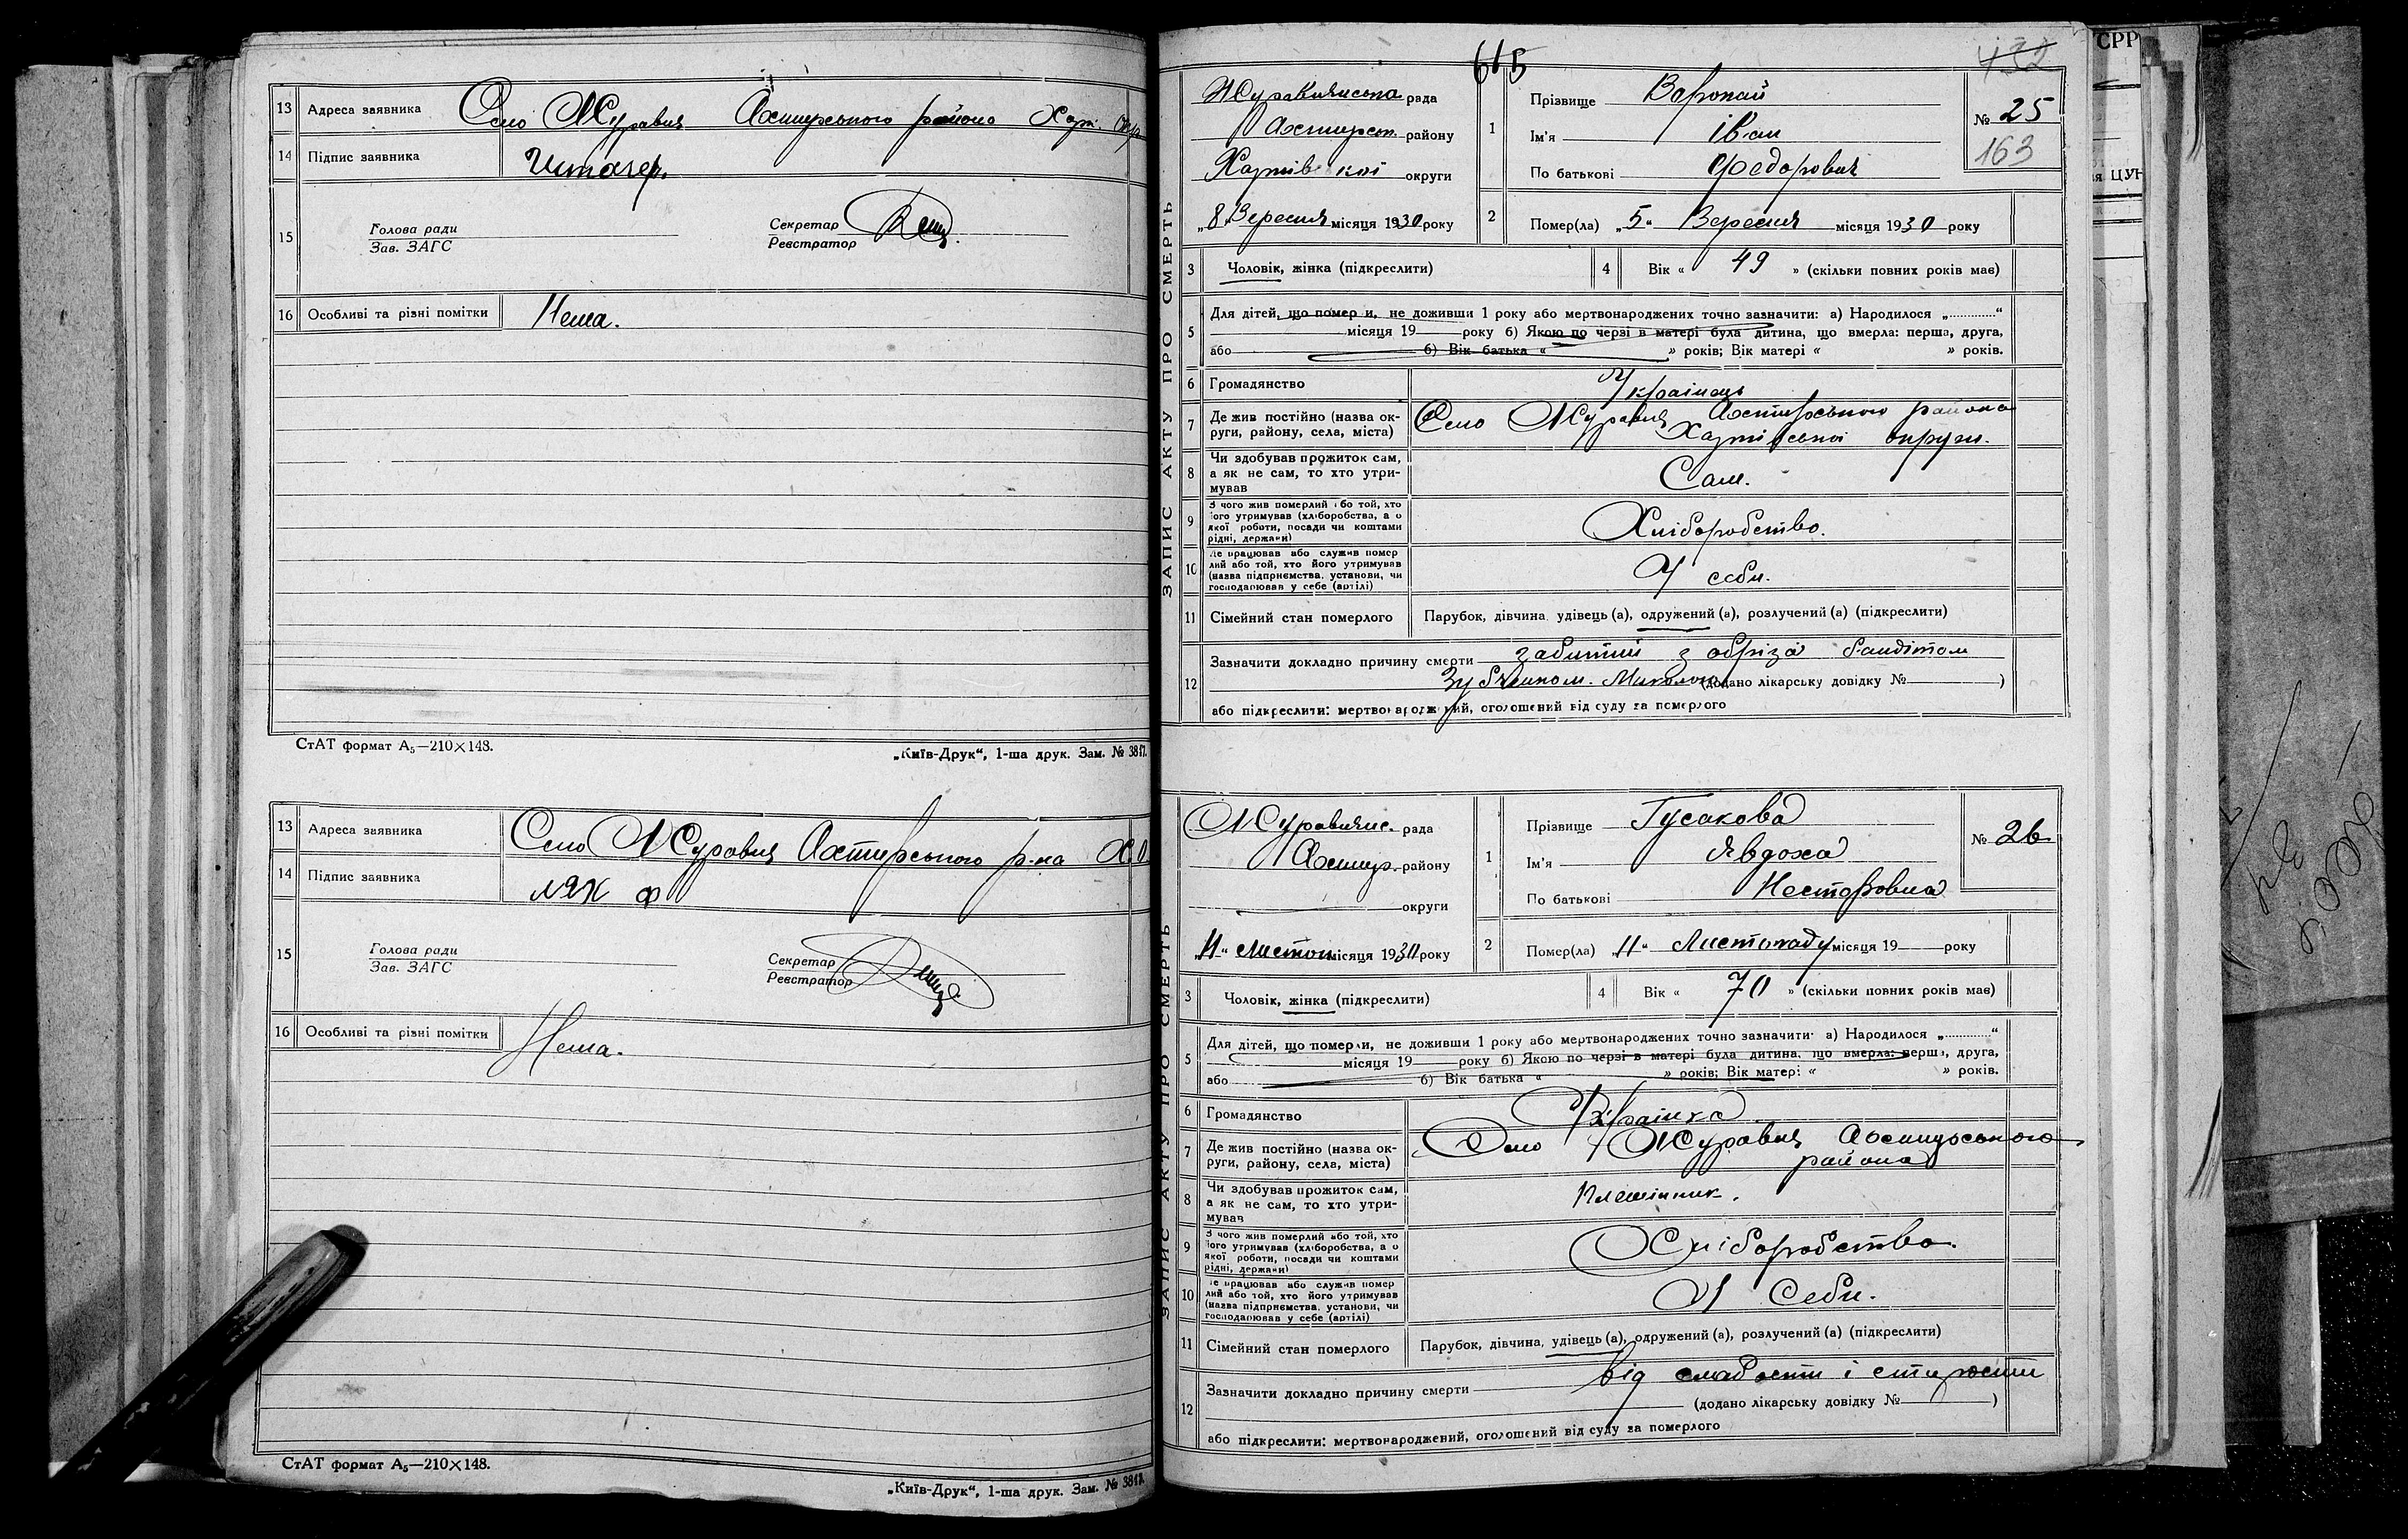 13 Адреса заявника Село Журавня Ахтирського района Харк. окр
14 Підпис заявника
15 Голова ради
Зав. ЗАГС
Секретар
Реєстратор
16 Особливі та різні помітки Нема.
СтАТ формат А₅—210×148.
„Київ-Друк“, 1-ша друк. Зам. № 3817.
13 Адреса заявника Село Журавня Ахтирського р-на Х О
14 Підпис заявника
15 Голова ради
Зав. ЗАГС
Секретар
Реєстратор
16 Особливі та різні помітки Нема.
СтАТ формат А₅—210×148.
„Київ-Друк“, 1-ша друк. Зам. № 3817.
615
432
СРР
ЦУН
ЗАПИС АКТУ ПРО СМЕРТЬ
Журавнянська рада
Ахтирськ. району
Харківської округи
„8 Вересня місяця 1930 року
1 Прізвище Воропай
Ім'я Іван
По батькові Федорович
№ 25
163
2 Помер(ла) „5“ Вересня місяця 1930 року
3 Чоловік, жінка (підкреслити)
4 Вік « 49 » (скільки повних років має)
5 Для дітей, що померли, не доживши 1 року або мертвонароджених точно зазначити: а) Народилося „............“
місяця 19 року б) Якою по черзі в матері була дитина, що вмерла: перша, друга,
або б) Вік батька « » років; Вік матері « » років.
6 Громадянство Українець
7 Де жив постійно (назва ок-
руги, району, села, міста) Село Журавня Ахтирського района
Харківської округи.
8 Чи здобував прожиток сам,
а як не сам, то хто утри-
мував Сам.
9 З чого жив померлий або той, хто
його утримував (хліборобства, а о
якої роботи, посади чи коштами
рідні, держави) Хліборобство.
10 Де працював або служив помер
лий або той, хто його утримував
(назва підприємства, установи, чи
господарював у себе (артілі) У себи.
11 Сімейний стан померлого Парубок, дівчина, удівець (а), одружений (а), розлучений (а) (підкреслити)
12 Зазначити докладно причину смерти забитий з обріза бандітом
Зубченком. Миколою (додано лікарську довідку № )
або підкреслити: мертвонароджений, оголошений від суду за померлого
ЗАПИС АКТУ ПРО СМЕРТЬ
Журавнянс. рада
Ахтир. району
округи
„11“ Листоп місяця 1930 року
1 Прізвище Гусакова
Ім'я Явдоха
По батькові Несторовна
№ 26
2 Помер(ла) „11“ Листопаду місяця 19 року
3 Чоловік, жінка (підкреслити)
4 Вік « 70 » (скільки повних років має)
5 Для дітей, що померли, не доживши 1 року або мертвонароджених точно зазначити: а) Народилося „............“
місяця 19 року б) Якою по черзі в матері була дитина, що вмерла: перша, друга,
або б) Вік батька « » років; Вік матері « » років.
6 Громадянство Українка
7 Де жив постійно (назва ок-
руги, району, села, міста) Село Журавня Ахтирського
района
8 Чи здобував прожиток сам,
а як не сам, то хто утри-
мував Племінник.
9 З чого жив померлий або той, хто
його утримував (хліборобства, а о
якої роботи, посади чи коштами
рідні, держави) Хліборобство.
10 Де працював або служив помер
лий або той, хто його утримував
(назва підприємства, установи, чи
господарював у себе (артілі) У Себи.
11 Сімейний стан померлого Парубок, дівчина, удівець (а), одружений (а), розлучений (а) (підкреслити)
12 Зазначити докладно причину смерти від слабости і старости
(додано лікарську довідку № )
або підкреслити: мертвонароджений, оголошений від суду за померлого